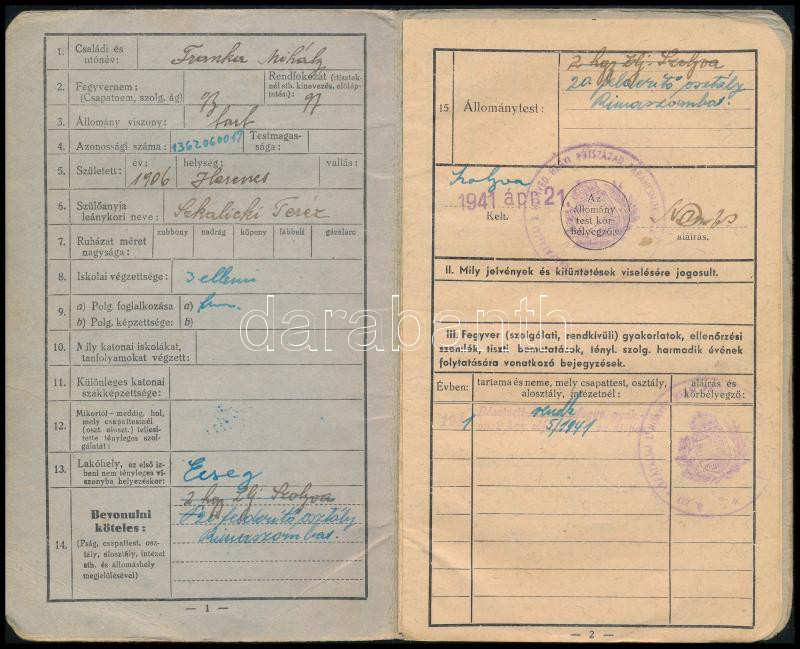 1. Családi és utónév: Franka Mihály
2. Fegyvernem: (Csapatnem, szolg. ág)
Rendfokozat (tisztek-
nél stb. kinevezés, előlép-
tetés):
3. Állomány viszony: tart
4. Azonossági száma: 1362060017 Testmagas-
sága:
5. Született: év: 1906 helység: Herencs vallás:
6. Szülőanyja
leánykori neve: Szkalicki Teréz
7. Ruházat méret
nagysága: zubbony nadrág köpeny lábbeli gázálarc
8. Iskolai végzettsége: 3 elemi
9. a) Polg. foglalkozása a)
b) Polg. képzettsége: b)
10. Mily katonai iskolákat,
tanfolyamokat végzett:
11. Különleges katonai
szakképzettsége:
12. Mikortól—meddig, hol,
mely csapattestnél
(oszt. aloszt.) teljesi-
tette tényleges szol-
gálatát:
13. Lakóhely, az első iz-
beni nem tényleges vi-
szonyba helyezéskor: Ecseg
14. Bevonulni
köteles:
(Pság, csapattest, osz-
tály, alosztály, intézet
stb. és állomáshely
megjelölésével)
2 hgy Zlj. Szolyva
20 felderitő osztály
Rimaszombat.
— 1 —
15 Állománytest:
2 hgy Zlj. Szolyva
20 felderitő osztály
Rimaszombat.
Szolyva
1941 ápr 21
Kelt.
Az
állomány
test kör-
bélyegzője
aláírás.
II. Mily jelvények és kitüntetések viselésére jogosult.
III. Fegyver (szolgálati, rendkívüli) gyakorlatok, ellenőrzési
szemlék, tiszti bemutatások, tényl. szolg. harmadik évének
folytatására vonatkozó bejegyzések.
Évben: tartama és neme, mely csapattest, osztály,
alosztály, intézetnél: aláírás és
körbélyegző:
rendk
5/1941
— 2 —
darabanth